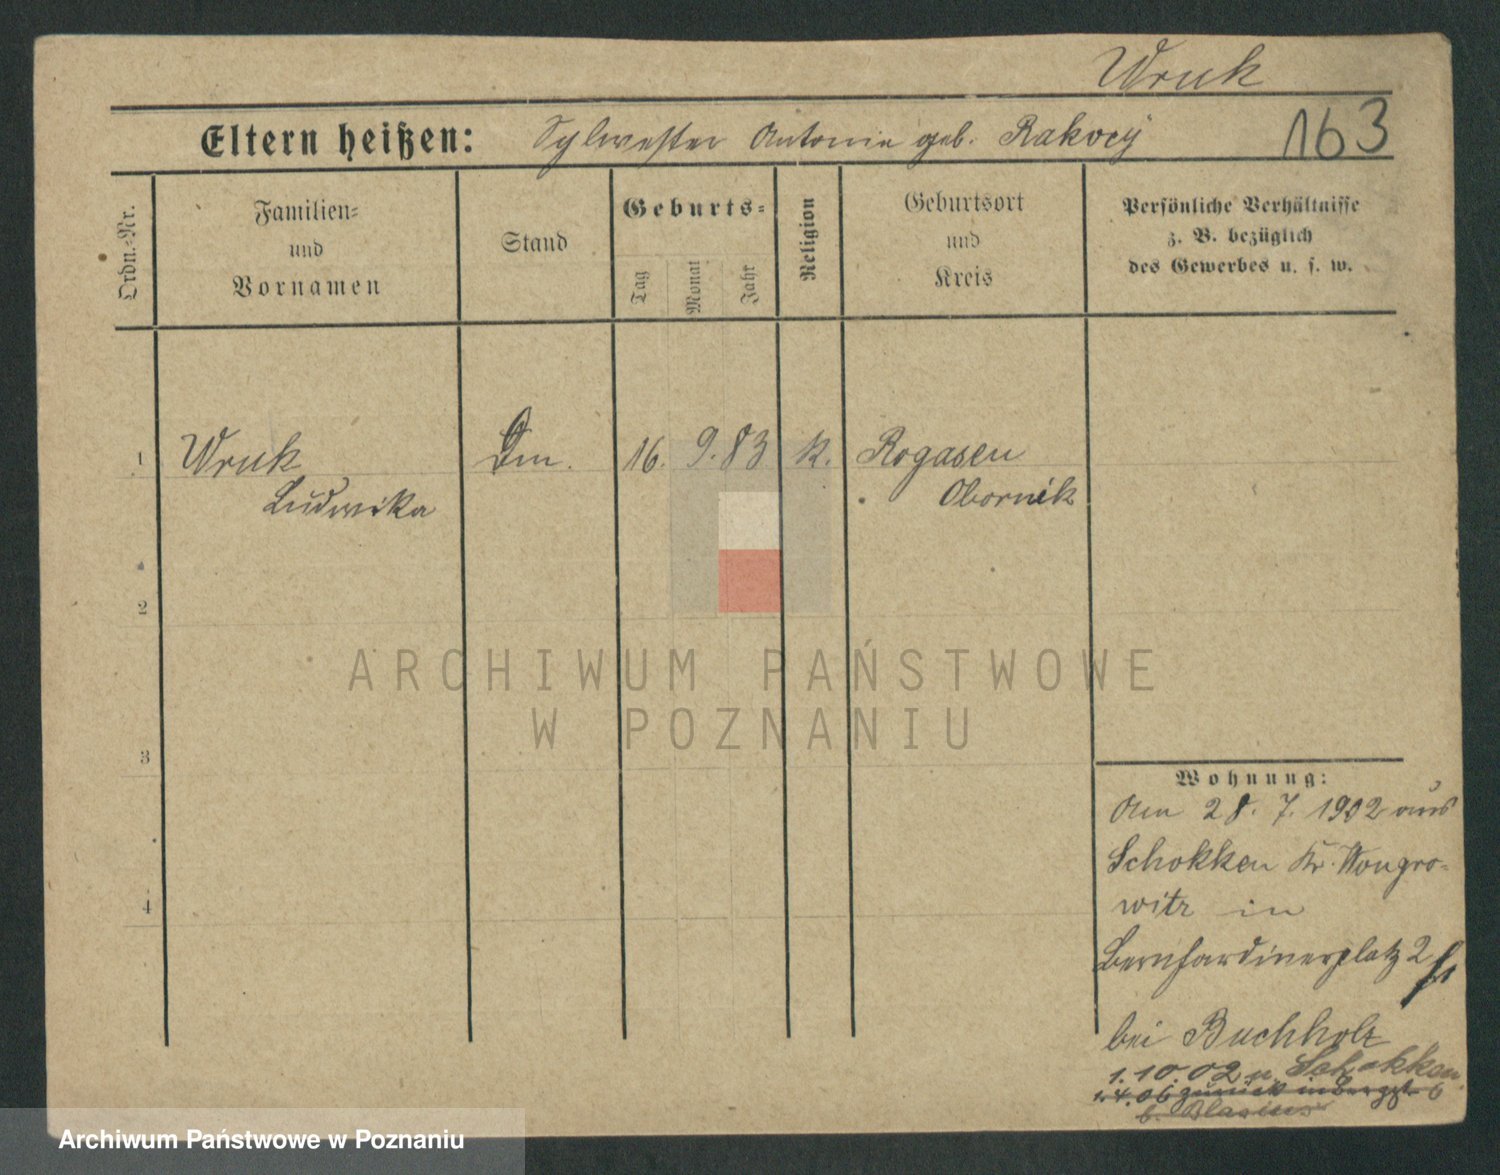 Wruk
163
Eltern heißen: Sylwester Antonie geb. Rakocy
Ordn.-Nr.
Familien-
und
Vornamen
Stand
Geburts-
Tag
Monat
Jahr
Religion
Geburtsort
und
Kreis
Persönliche Verhältnisse
z. B. bezüglich
des Gewerbes u. s. w.
1 Wruk Dm. 16. 9. 83 k. Rogasen
Ludwika Obornik
2
3
4
ARCHIWUM PAŃSTWOWE
W POZNANIU
Wohnung:
Am 28. 7. 1902 aus
Schokken Kr. Wongro-
witz in
Bernhardinerplatz 2
bei Buchholz
1. 10. 02 n. Schokken
1. 4. 06 zurück in Bergstr. 6
b. Blasius
Archiwum Państwowe w Poznaniu